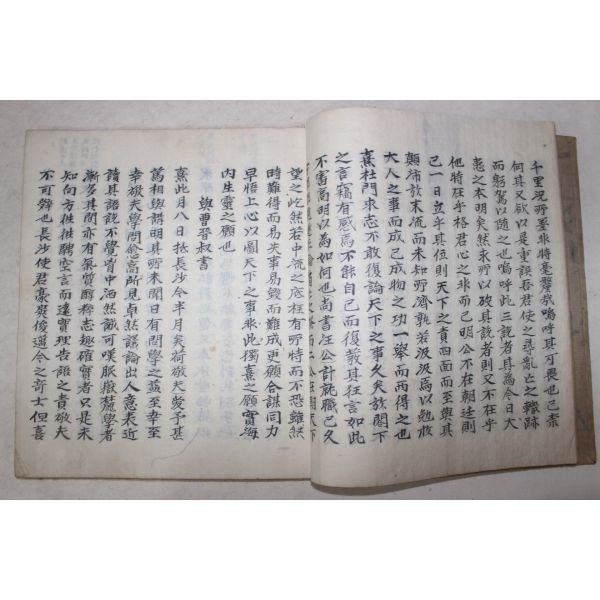 千里現所墨非特毫釐哉嗚呼其可畏也已柰
何其又欲以是重誤吾君使之尋亂亡之轍跡
而躬駕以隨之也嗚呼此三說者其為今日大
患之本明矣然求所以破其說者則又不在乎
他特在乎格君心之非而已明公不在朝廷則
已一日立乎其位則天下之責四面而至與其
顛沛於末流而未知所濟孰若汲汲焉以勉於
大人之事而成己成物之功一舉而兩得之也
熹杜門求志不敢復論天下之事久矣於閤下
之言竊有感焉不能自已而復發其狂言如此
不審高明以為如何也尚書汪公計就職已久
望之屹然若中流之底柱有所恃而不恐雖然
時難得而易失事易毀而難成更願合謀同力
早悟上心以圖天下之事非此獨熹之願實海
內生靈之願也
與曹晉叔書
熹此月八日抵長沙今半月矣荷敬夫愛予甚
篤相與講明其所未聞日有問學之益至幸至
幸敬夫學問愈高所見卓然議論出人意表近
讀其語說不覺胷中洒然誠可嘆服嶽麓學者
漸多其間亦有氣質醇粹志趣確實者只是未
知向方往往騁空言而遠實理告語之責敬夫
不可辭也長沙使君豪爽俊邁今之奇士但喜